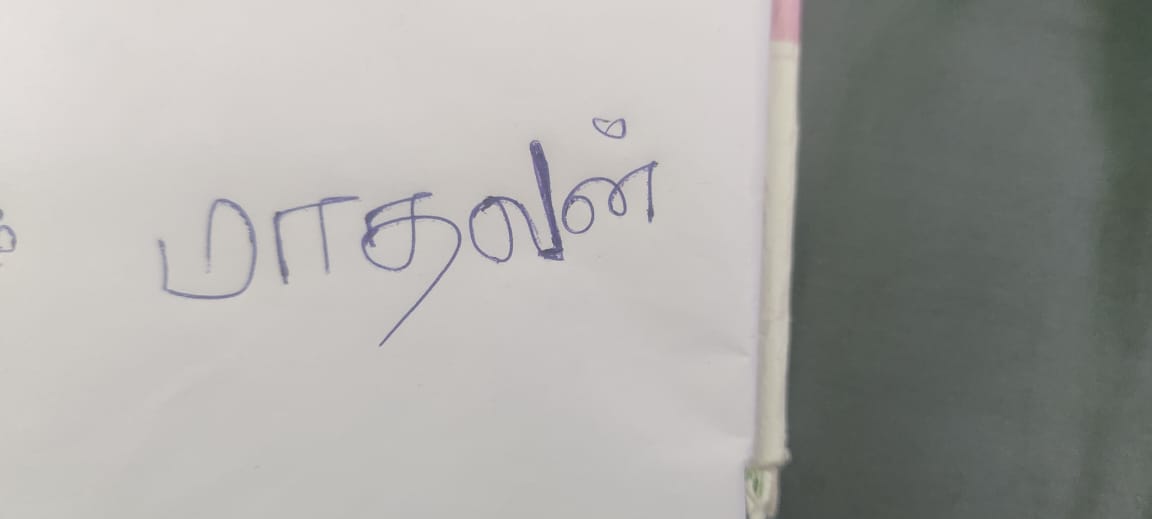 மாதவன்